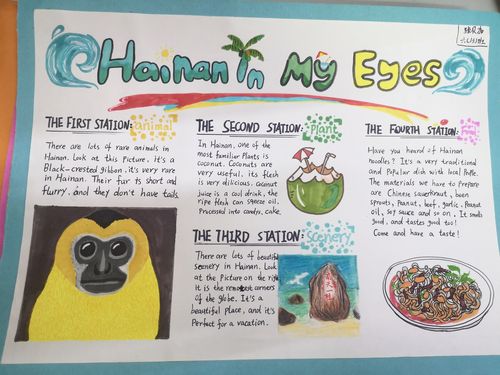 Hainan in My Eyes
THE FIRST STATION: animal
There are lots of rare animals in
Hainan. Look at this picture. it's a
Black-crested gibbon. it's very rare
in Hainan. Their fur is short and
flurry. and they don't have tails.
THE SECOND STATION: plant
In Hainan, one of the
most familiar Plants is
coconut. Coconuts are
very useful. its flesh
is very dilicious. coconut
juice is a cool drink, the
ripe flesh can sgeeze oil.
Processed into candry, cake.
THE THIRD STATION: scenery
There are lots of beautiful
scenery in Hainan. Look
at the picture on the right
It is the remotest corners
of the globe. It's a
beautiful place, and it's
Perfect for a vacation.
THE FOURTH STATION:
Have you heard of Hainan
noodles? It's a very traditional
and Popular dish with local People.
The materials we have to prepare
are Chinese sauerkraut, bean
sprouts, Peanut, beef, garlic, Peanut
oil, soy sauce and so on. It smells
good, and tastes good too!
Come and have a taste!